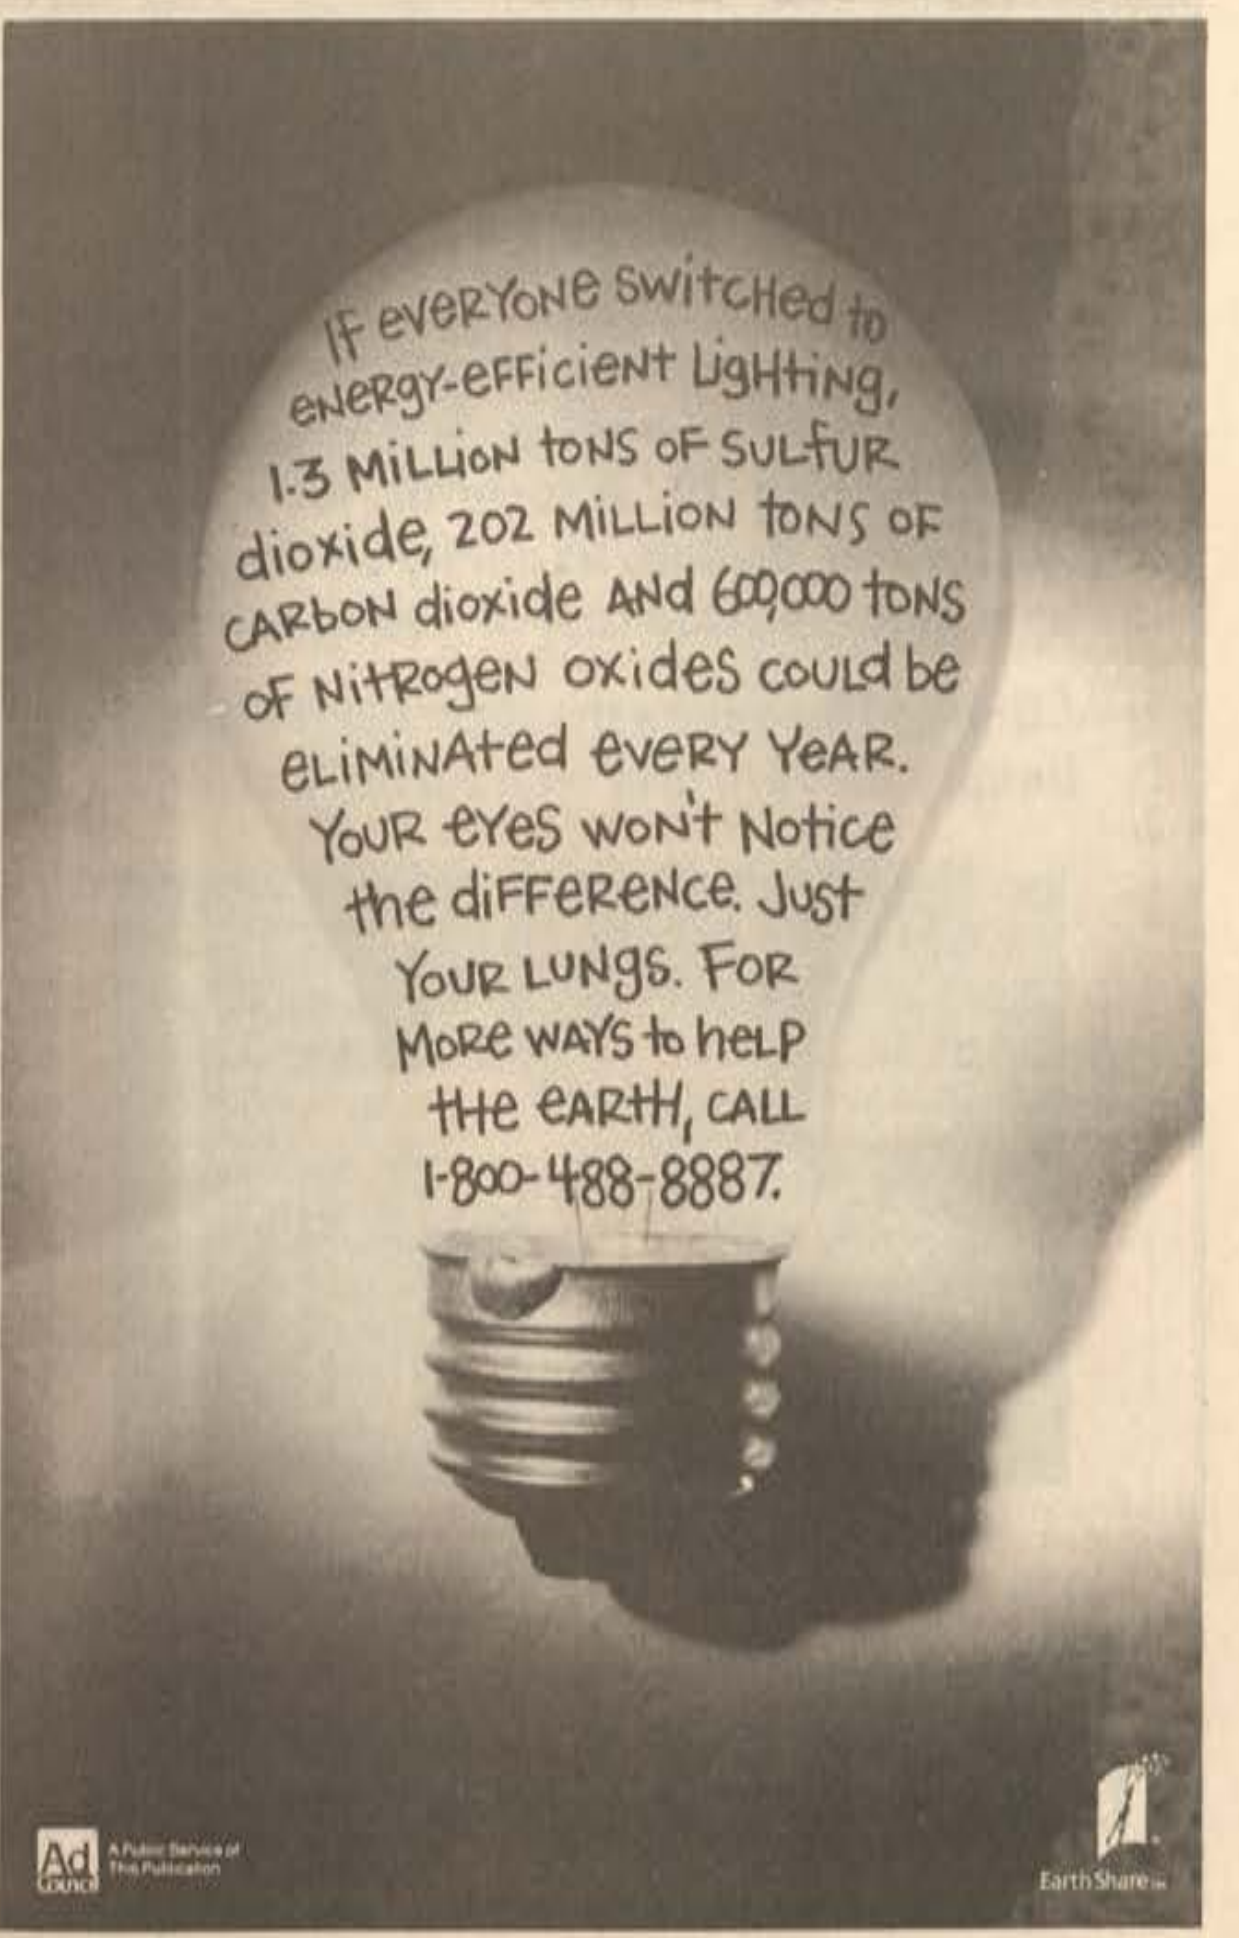 IF eveRYoNe SWitcHed to
eNeRgY-eFFicieNt LigHtiNg,
1.3 MiLLioN toNS oF SULfUR
dioxide, 202 MiLLioN toNS oF
CARboN dioxide ANd 600,000 toNS
oF NitRogeN oxides couLd be
eLiMiNAted eveRY YeAR.
YouR eYeS woN't Notice
the diFFeReNce. JuSt
YouR LUNgS. FoR
MoRe WAYS to heLP
tHe eARtH, CALL
1-800-488-8887.
Ad
Council
A Public Service of
This Publication
Earth Share